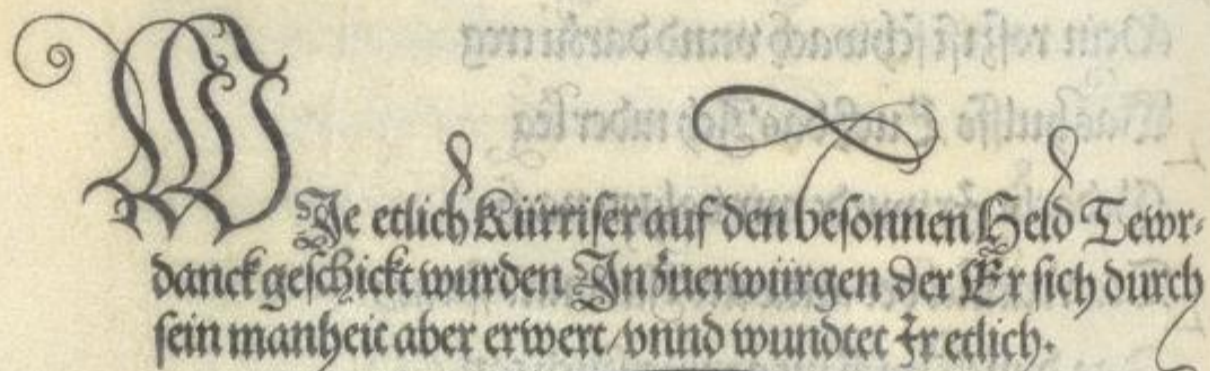 WIe etlich Kürriser auf den besonnen Held Tewr-
danck geschickt wurden In zuerwürgen Der Er sich durch
sein manheit aber erwert/ vnnd wundtet Ir etlich.